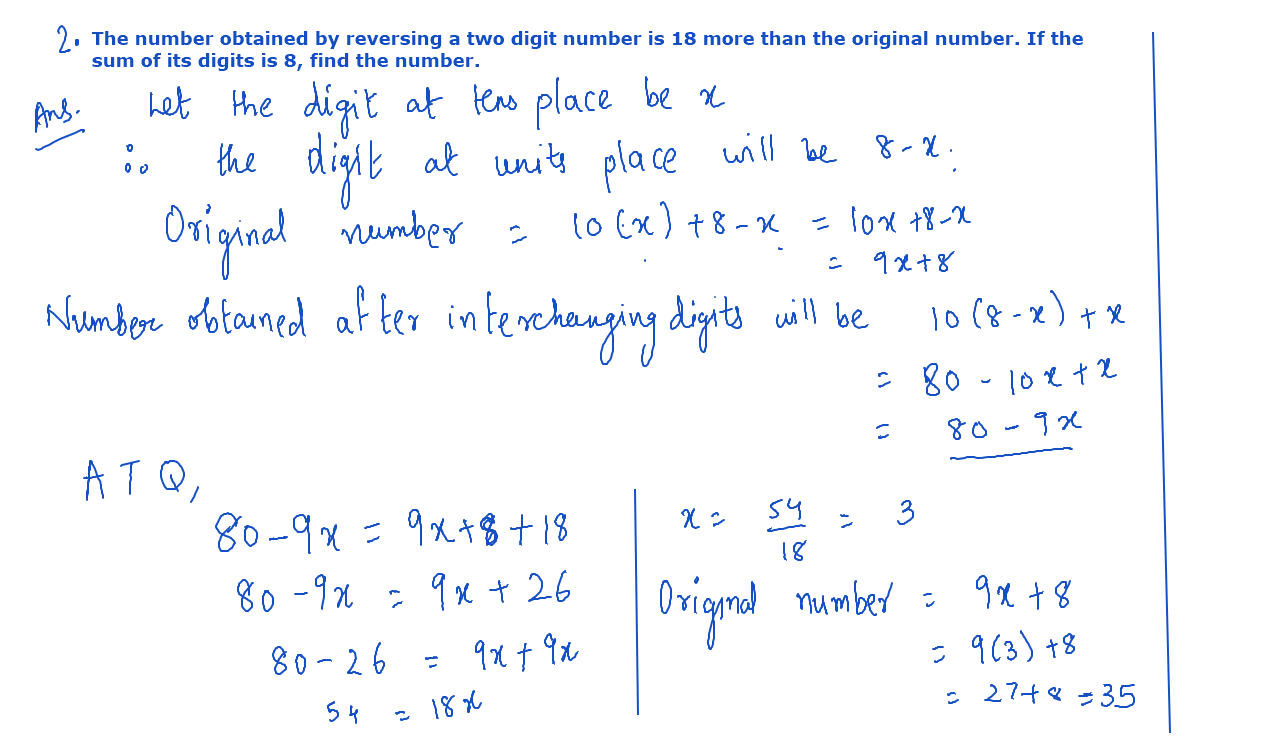 2. The number obtained by reversing a two digit number is 18 more than the original number. If the
sum of its digits is 8, find the number.
Ans. Let the digit at tens place be x
∴ the digit at units place will be 8-x.
Original number = 10(x)+8-x = 10x+8-x
= 9x+8
Number obtained after interchanging digits will be 10(8-x)+x
= 80-10x+x
= 80-9x
ATQ,
80-9x = 9x+8+18
80-9x = 9x+26
80-26 = 9x+9x
54 = 18x
x = 54/18 = 3
Original number = 9x+8
= 9(3)+8
= 27+8 = 35